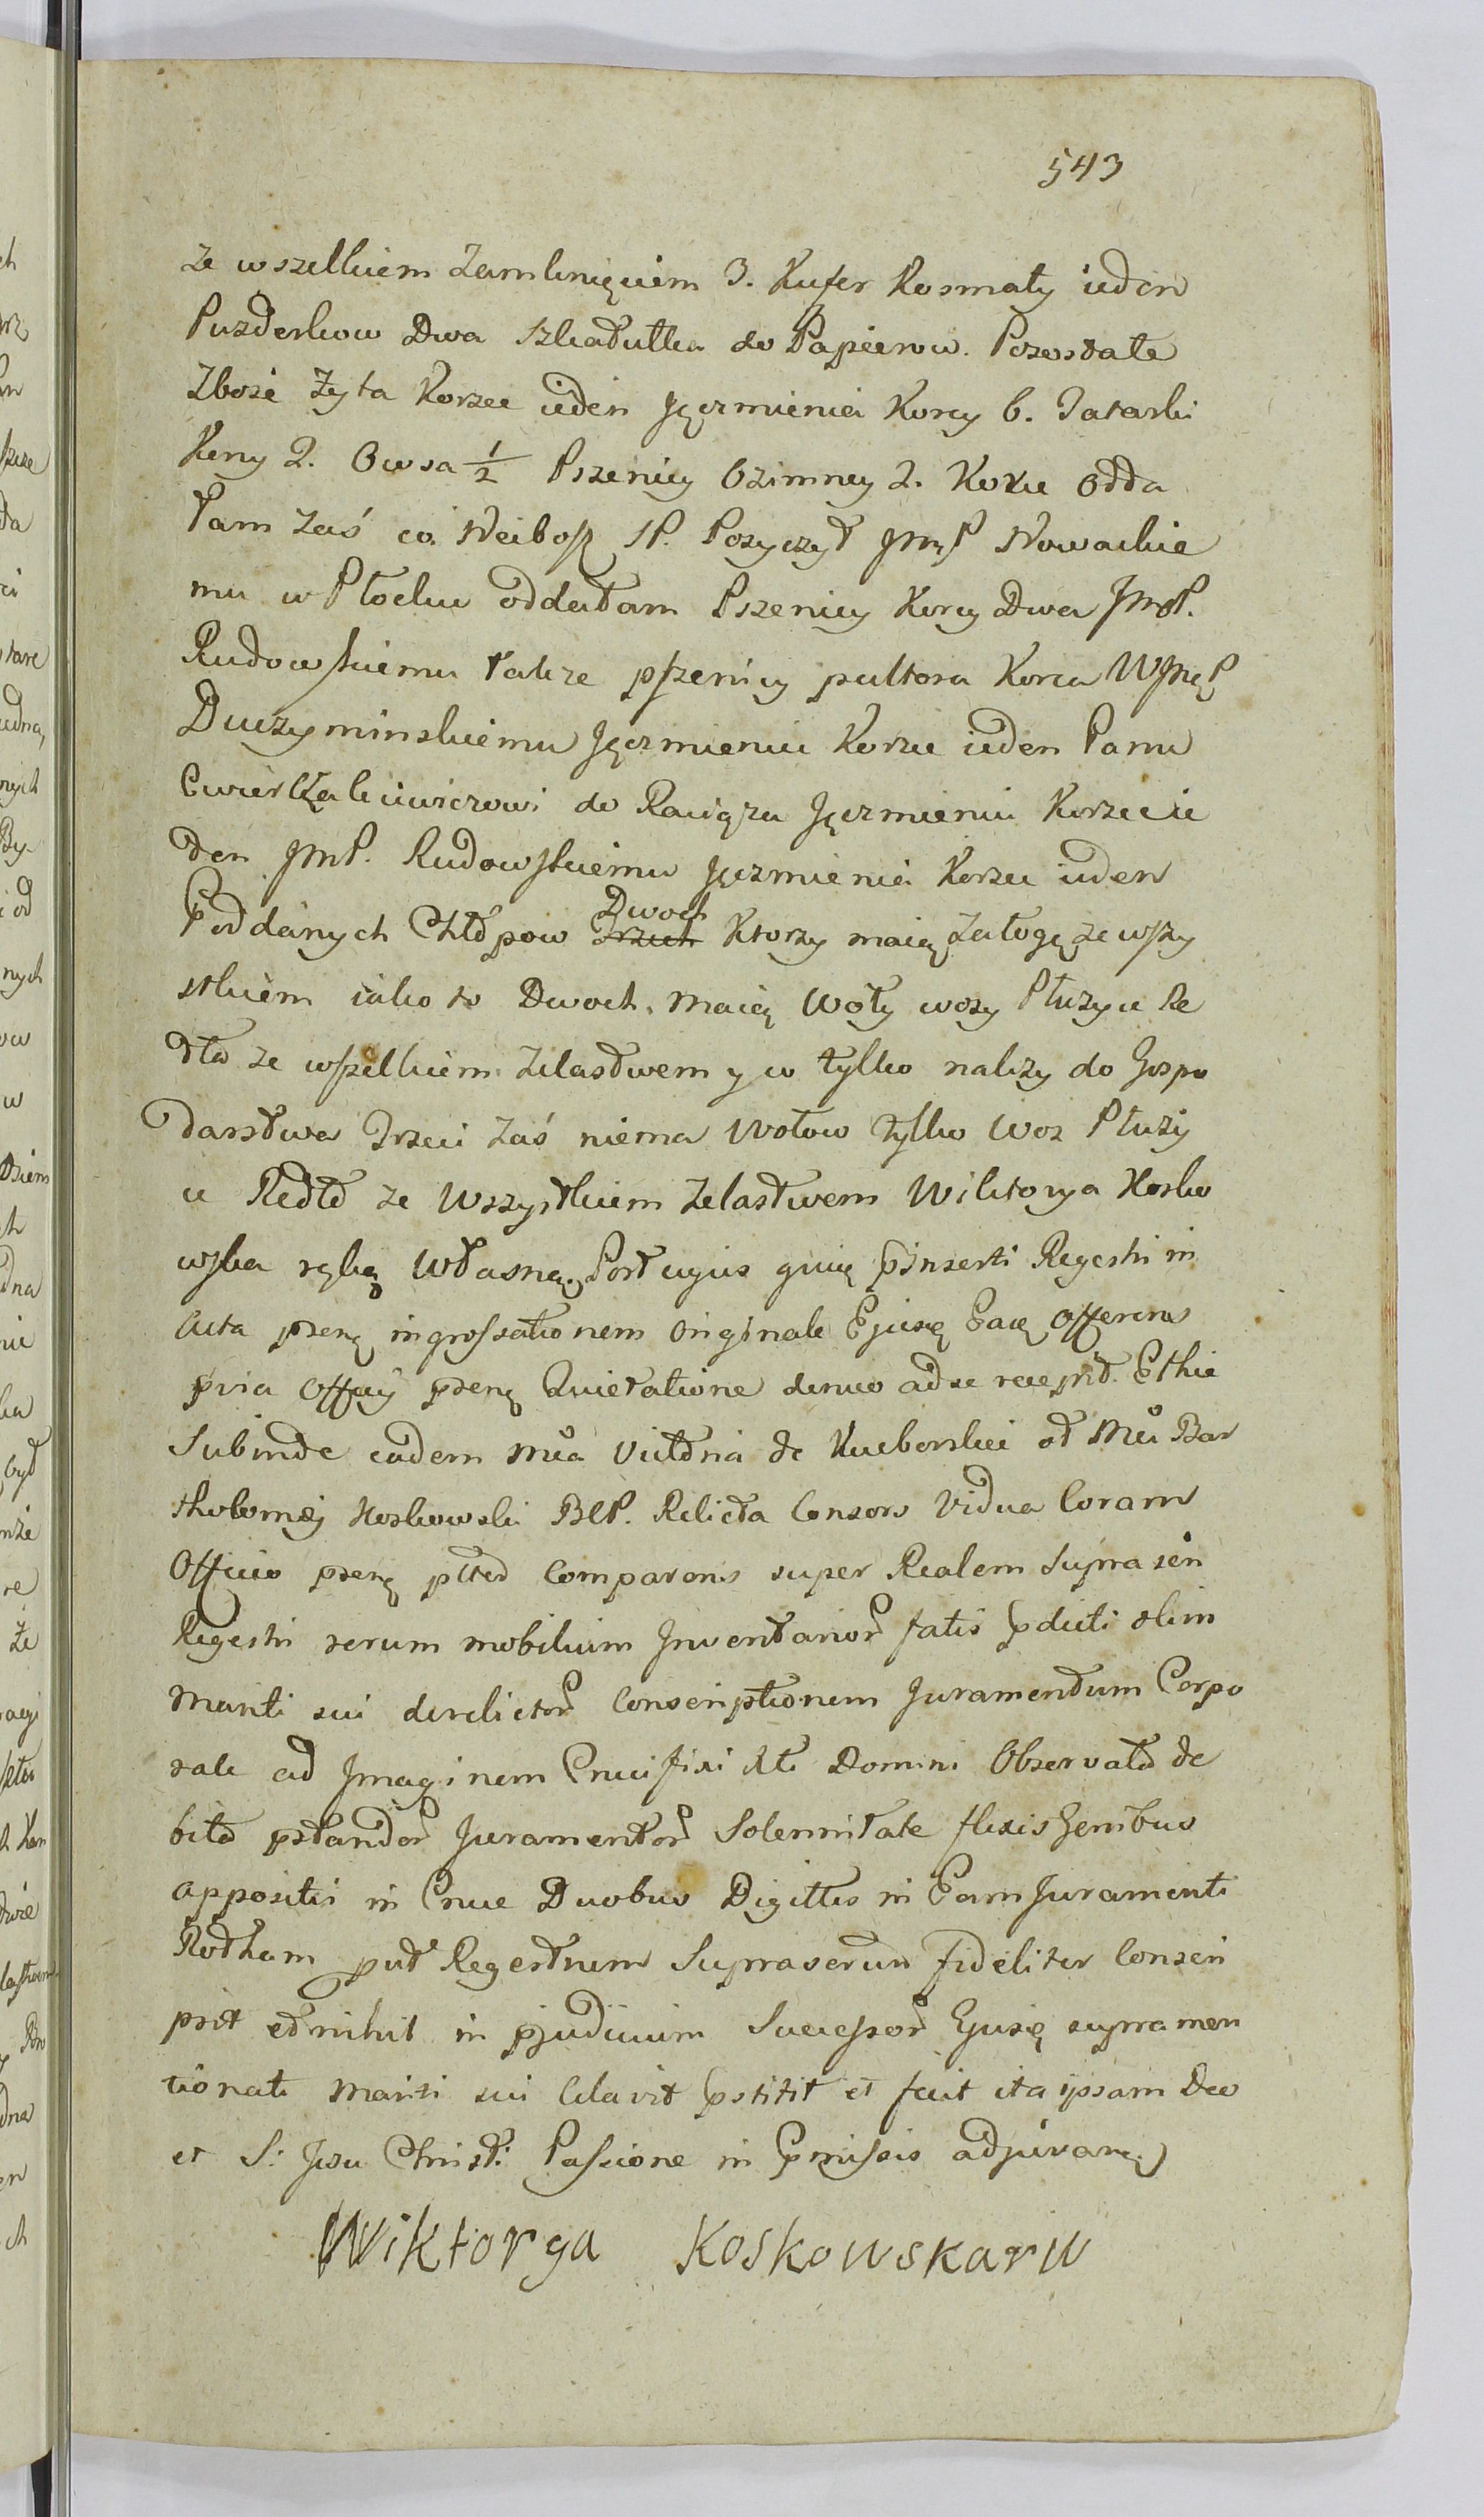 543
ze wszelkiem Zamknięciem 3. Kufer Kosmaty ieden
Puzderkow Dwa Szkatułka do Papierow. Pozostałe
Zboże Zyta Korzec ieden Jęczmienia Korcy 6. Tatarki
Korcy 2. Owsa ½ Pszenicy Ozimney 2. Korce Odda
łam zaś co Nieboszz SP. Pozyczył JmP Nowackie
mu w Płocku oddałam Pszenicy Korcy Dwa JmP.
Rudowskiemu także pszenicy pultora Korca WJmP
Duczyminskiemu Jęczmieniu Korzec ieden Panu
do Raciąza Jęczmieniu Korzec ie
den JmP. Rudowskiemu Jęczmienia Korzec ieden
Poddanych Chłopow Trzech Dwoch Ktorzy maią Załogę ze wszy
stkiem iako to Dwoch maią Woły wozy Płuzyce Re
dła ze wszelkiem Zelastwem y co tylko nalezy do Gospo
darstwa Trzeci zaś niema Wołow tylko Woz Płuży
ce Redło ze Wszystkiem Zelastwem Wiktorya Kosko
wska ręką Własną. Post cujus quię pinserti Regestri in
Acta psenę ingrossationem Originale Ejusę Eaię Offerens
pria Officÿ psenę Quietatione denuo ad se recepit. Et hic
Subinde eadem Mca Victoria de Kuczborskie olt Mci Bar
tholomęj Koskowski BCP. Relicta Consors Vidua Coram
Officio psenę plter Comparens super Realem Supra sen
Regestri rerum mobilium Inventarior fatis pdicti olim
Mariti sui derelictor Conscriptionem Juramentum Corpo
rale ad Imaginem Crucifixi Xti Domini Observata de
bita pstandor Juramentor Solennitate flexis Genibus
appositis in Cruce Duobus Digittis in Eam Juramenti
Rotham put Regestrum Suprasertum fideliter Conscri
psit et nihil in pjudicium Successor Ejusę supramen
tionati Mariti sui Celavit pstitit et fecit ita ipsam Deo
et S: Jesu Christi Passione in Pmissis adjuvarę
Wiktorya Koskowska r w